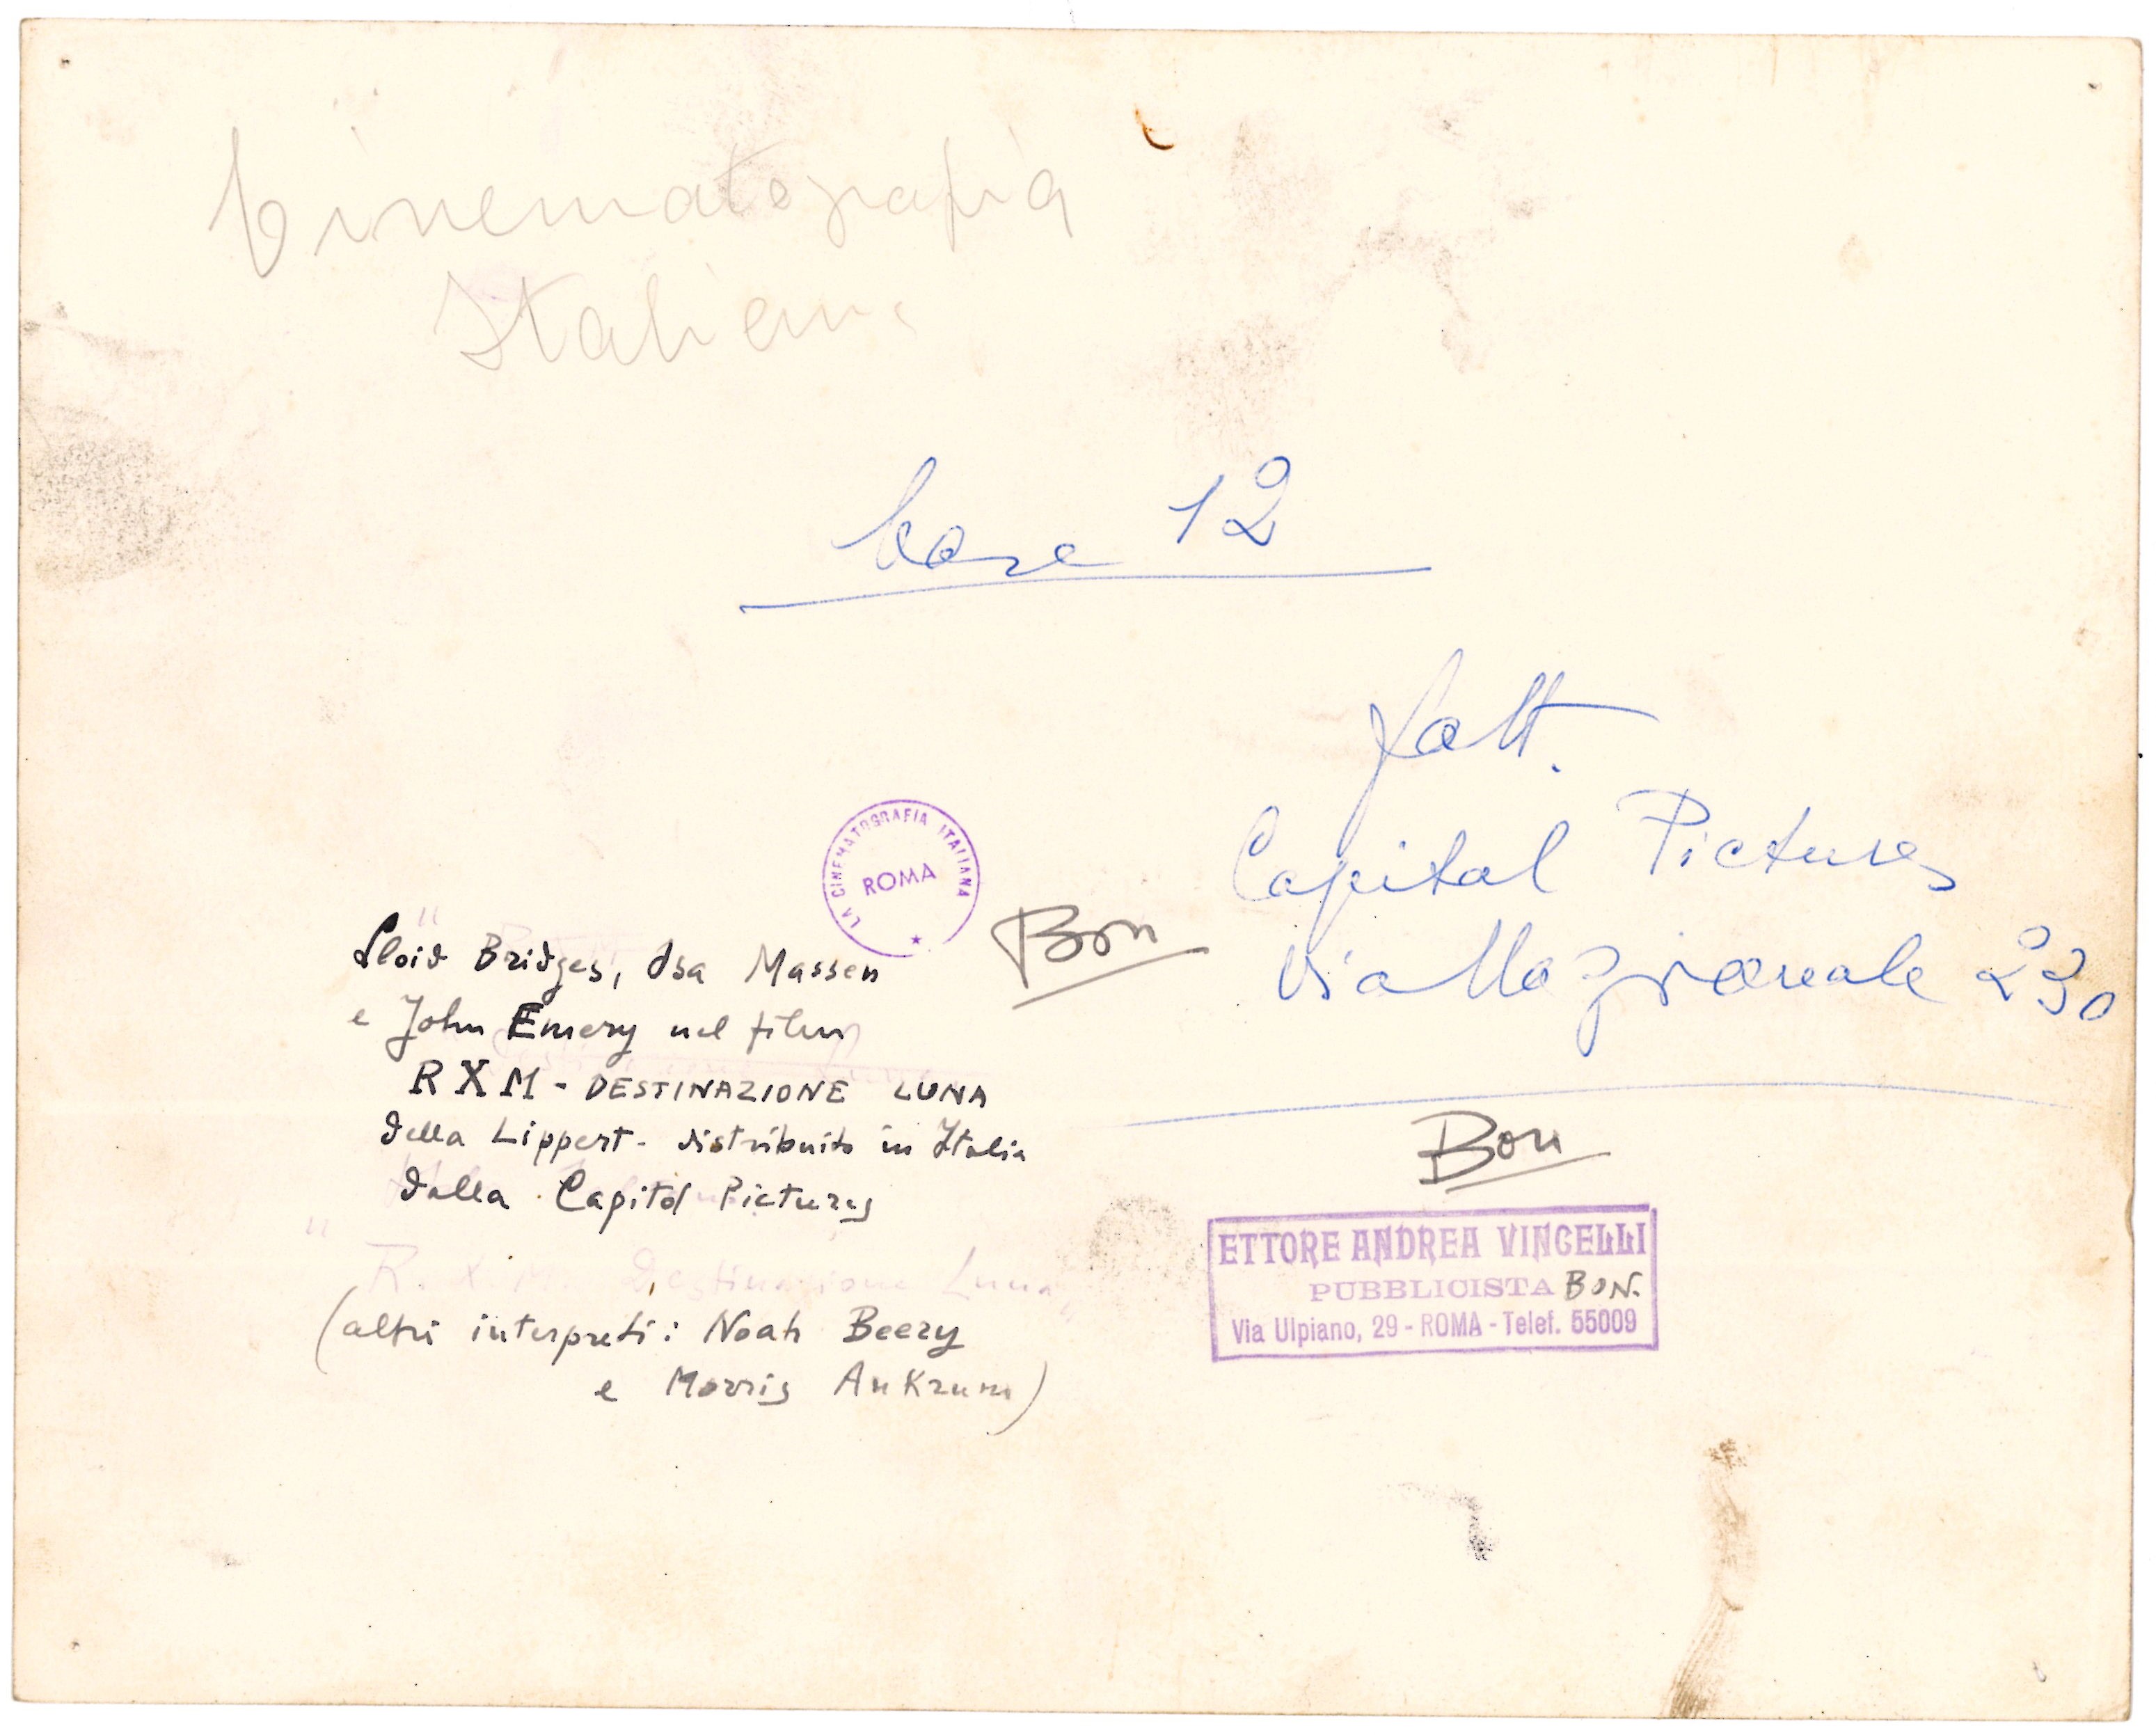 Cinematografia
Italiana
base 12
fatt.
Capital Pictures
Via Nazionale 230
LA CINEMATOGRAFIA ITALIANA
ROMA
Bon
Lloid Bridges, Osa Massen
e John Emery nel film
RXM - DESTINAZIONE LUNA
della Lippert - distribuito in Italia
dalla Capitol Pictures
"R. X. M. Destinazione Luna"
(altri interpreti: Noah Beery
e Morris Ankrum)
Bon
ETTORE ANDREA VINCELLI
PUBBLICISTA BON.
Via Ulpiano, 29 - ROMA - Telef. 55009